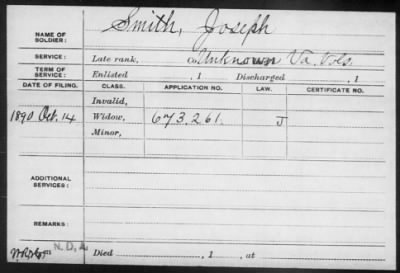 NAME OF SOLDIER: Smith, Joseph
SERVICE: Late rank, Co. Unknown Va. Vols.
TERM OF SERVICE: Enlisted , 1 Discharged , 1
DATE OF FILING. CLASS. APPLICATION NO. LAW. CERTIFICATE NO.
Invalid,
1890 Oct. 14 Widow, 673.261. J
Minor,
ADDITIONAL SERVICES:
REMARKS:
N.D.A. Died , 1 , at